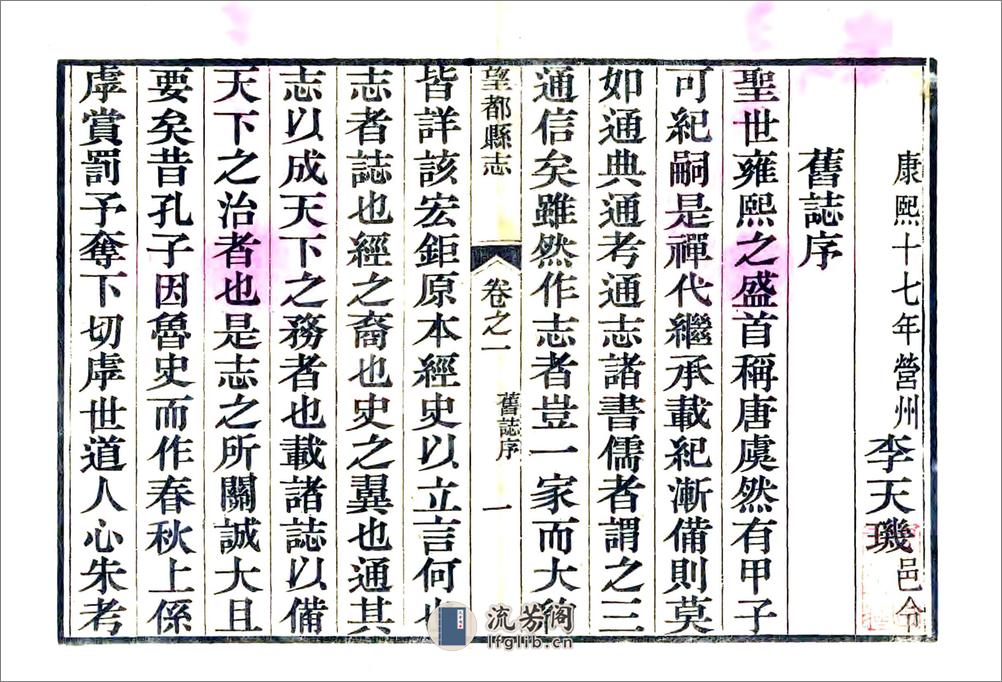 康熙十七年營州李天璣邑令
舊誌序
聖世雍熙之盛首稱唐虞然有甲子
可紀嗣是禪代繼承載紀漸備則莫
如通典通考通志諸書儒者謂之三
通信矣雖然作志者豈一家而大約
望都縣志
卷之一
舊誌序
一
皆詳該宏鉅原本經史以立言何也
志者誌也經之裔也史之翼也通其
志以成天下之務者也載諸誌以備
天下之治者也是志之所關誠大且
要矣昔孔子因魯史而作春秋上係
虖賞罰予奪下切虖世道人心朱考
流芳阁
lfglib.cn